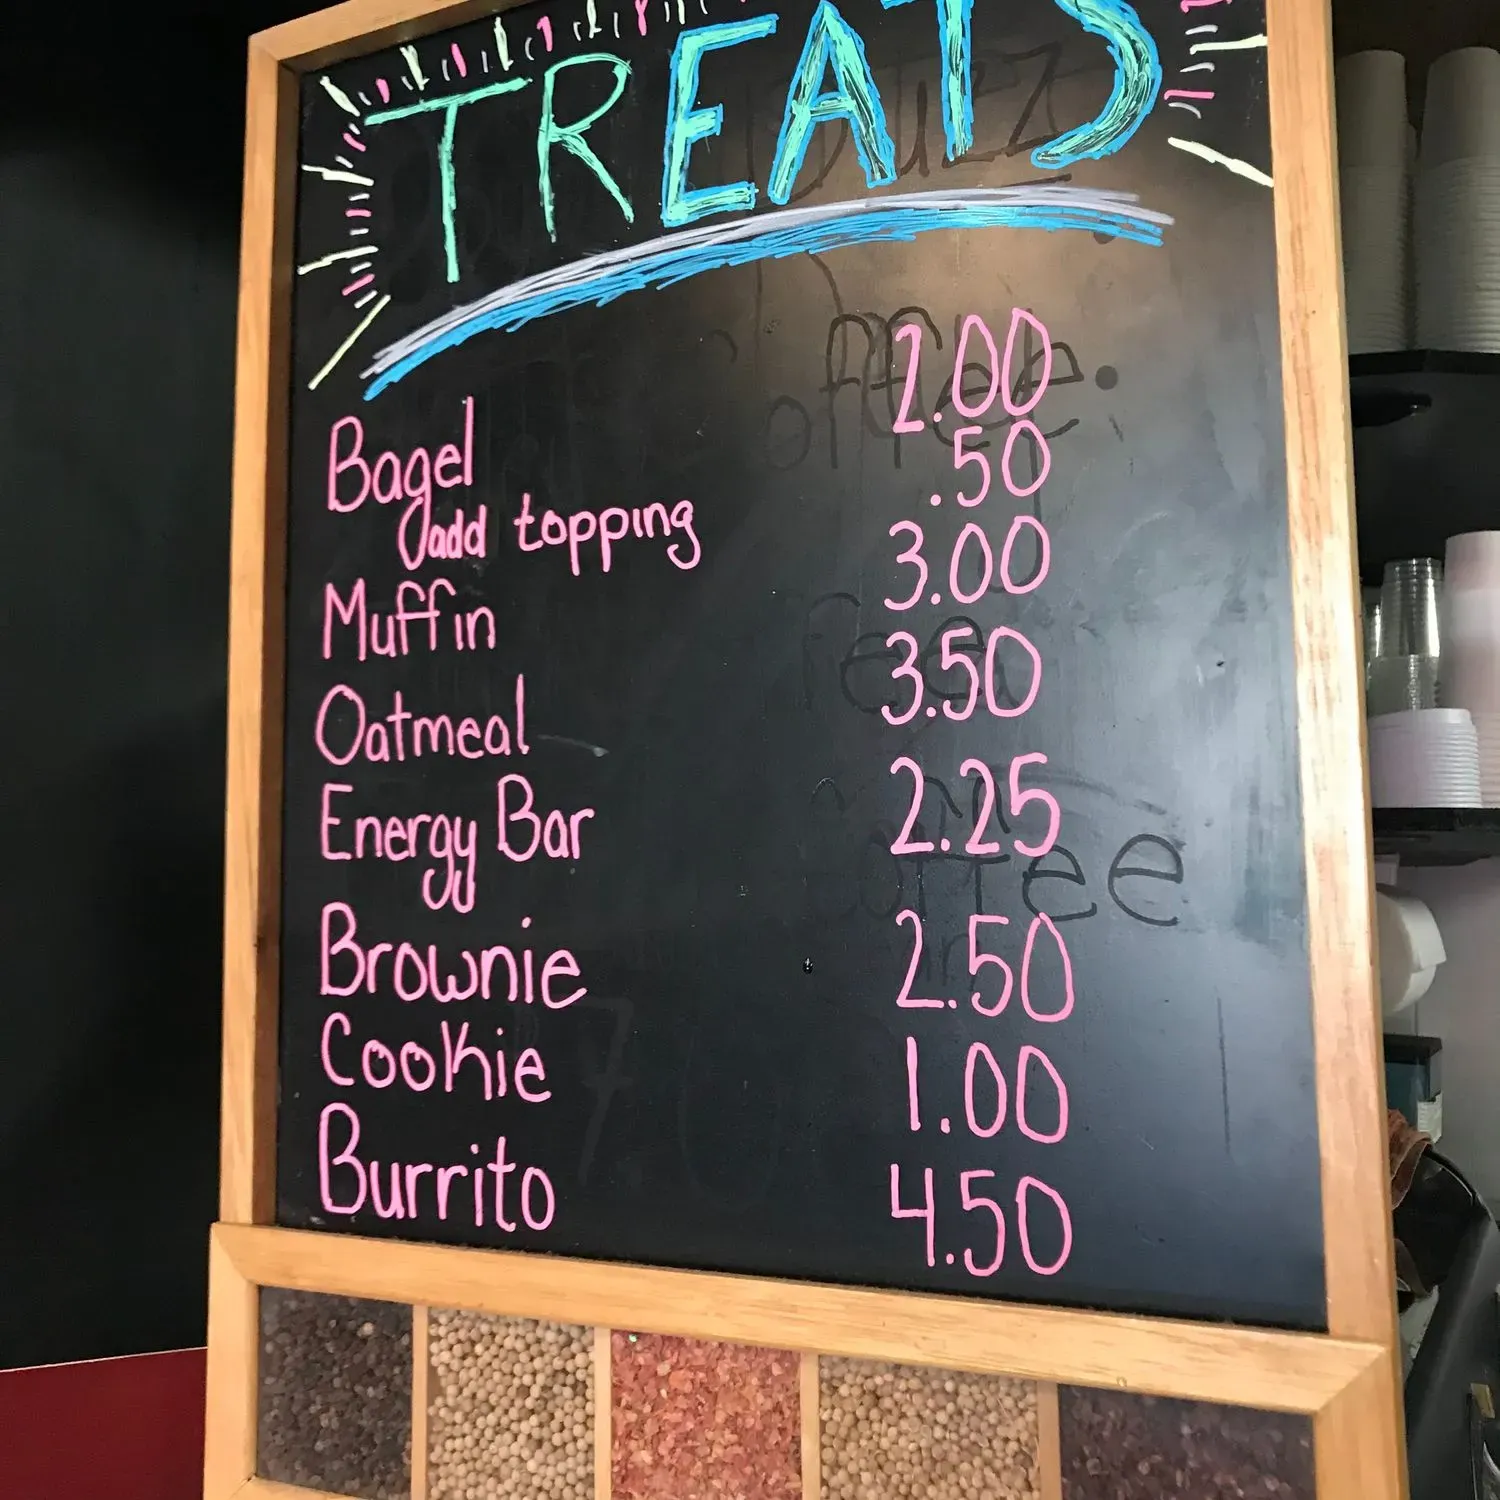 TREATS
Bagel 2.00
add topping .50
Muffin 3.00
Oatmeal 3.50
Energy Bar 2.25
Brownie 2.50
Cookie 1.00
Burrito 4.50